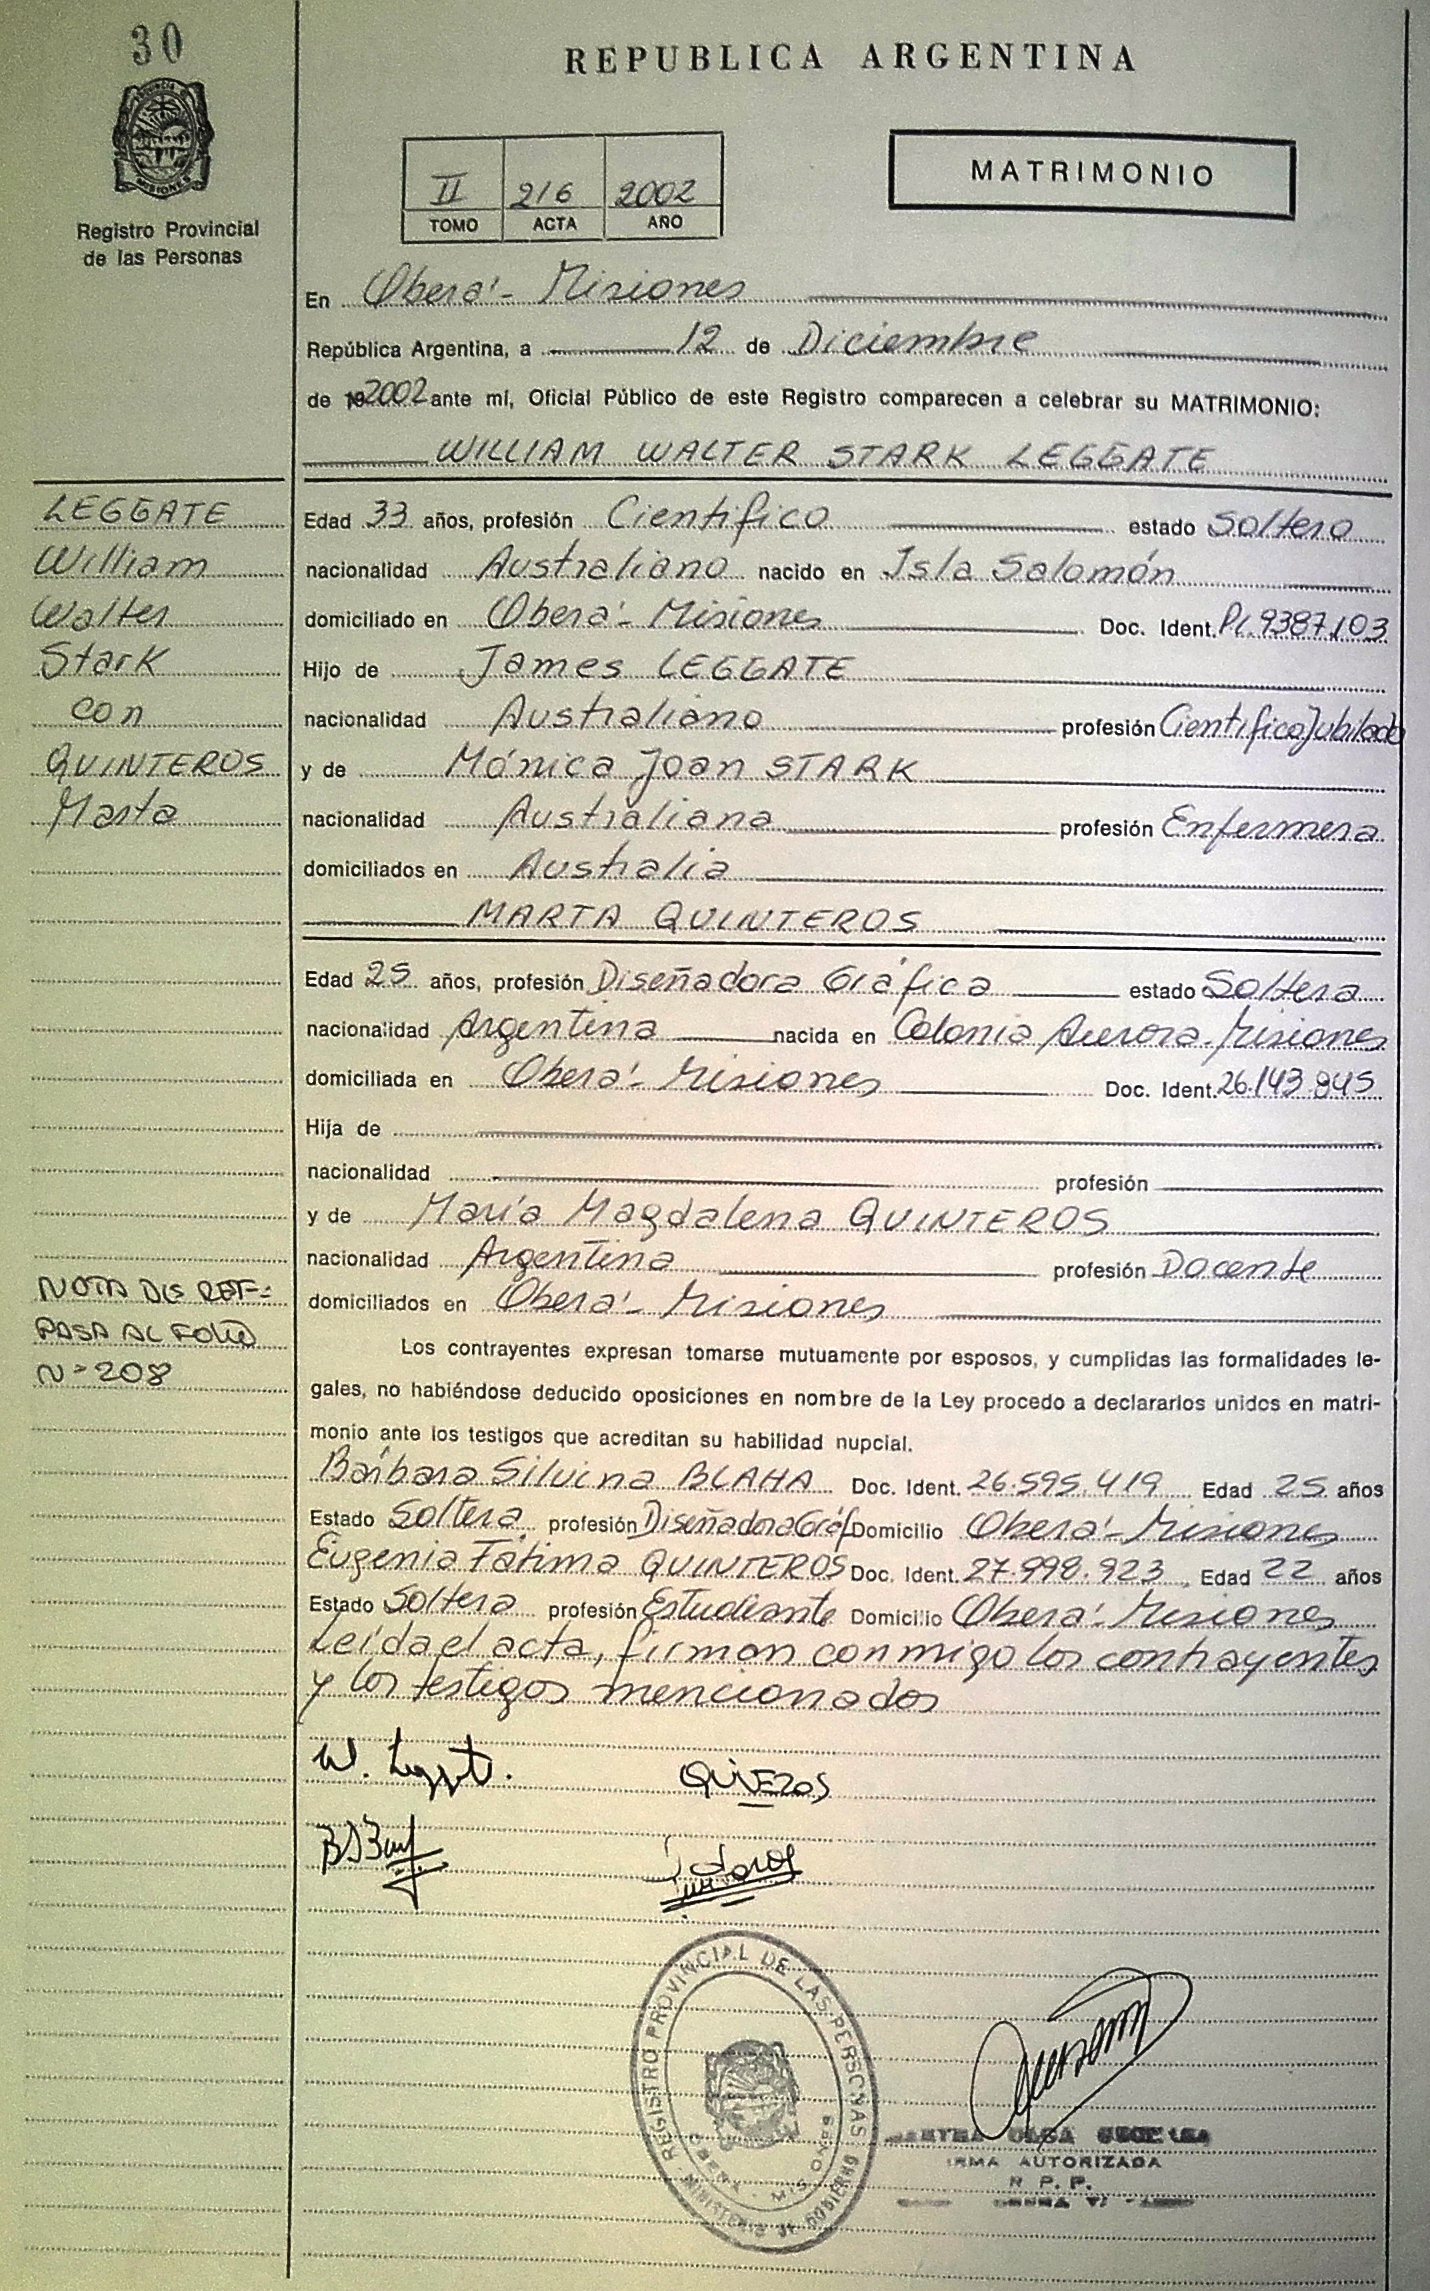 30
REPUBLICA ARGENTINA
PROVINCIA DE MISIONES
Registro Provincial
de las Personas
II 216 2002
TOMO ACTA AÑO
MATRIMONIO
En Oberá - Misiones
República Argentina, a 12 de Diciembre
de 2002 ante mí, Oficial Público de este Registro comparecen a celebrar su MATRIMONIO:
WILLIAM WALTER STARK LEGGATE
LEGGATE
William
Walter
Stark
con
QUINTEROS
Marta
Edad 33 años, profesión Cientifico estado Soltero
nacionalidad Australiano nacido en Isla Salomón
domiciliado en Oberá - Misiones Doc. Ident. 9387103
Hijo de James LEGGATE
nacionalidad Australiano profesión Cientifico Jubilado
y de Mónica Joan STARK
nacionalidad Australiana profesión Enfermera
domiciliados en Australia
MARTA QUINTEROS
Edad 25 años, profesión Diseñadora Gráfica estado Soltera
nacionalidad Argentina nacida en Colonia Aurora - Misiones
domiciliada en Oberá - Misiones Doc. Ident. 26.143.845
Hija de
nacionalidad profesión
y de María Magdalena QUINTEROS
nacionalidad Argentina profesión Docente
domiciliados en Oberá - Misiones
NOTA DE REF=:
PASA AL FOLIO
Nº 208
Los contrayentes expresan tomarse mutuamente por esposos, y cumplidas las formalidades le-
gales, no habiéndose deducido oposiciones en nombre de la Ley procedo a declararlos unidos en matri-
monio ante los testigos que acreditan su habilidad nupcial.
Bárbara Silvina BLAHA Doc. Ident. 26.595.419 Edad 25 años
Estado Soltera profesión Diseñadora Gráf Domicilio Oberá - Misiones
Eugenia Fátima QUINTEROS Doc. Ident. 27.998.923 Edad 22 años
Estado Soltera profesión Estudiante Domicilio Oberá - Misiones
Leída el acta, firman conmigo los contrayentes
y los testigos mencionados
W. Leggate.
REGISTRO PROVINCIAL DE LAS PERSONAS
OBERA - MISIONES
MINISTERIO DE GOBIERNO
OLGA
FIRMA AUTORIZADA
R. P. P.